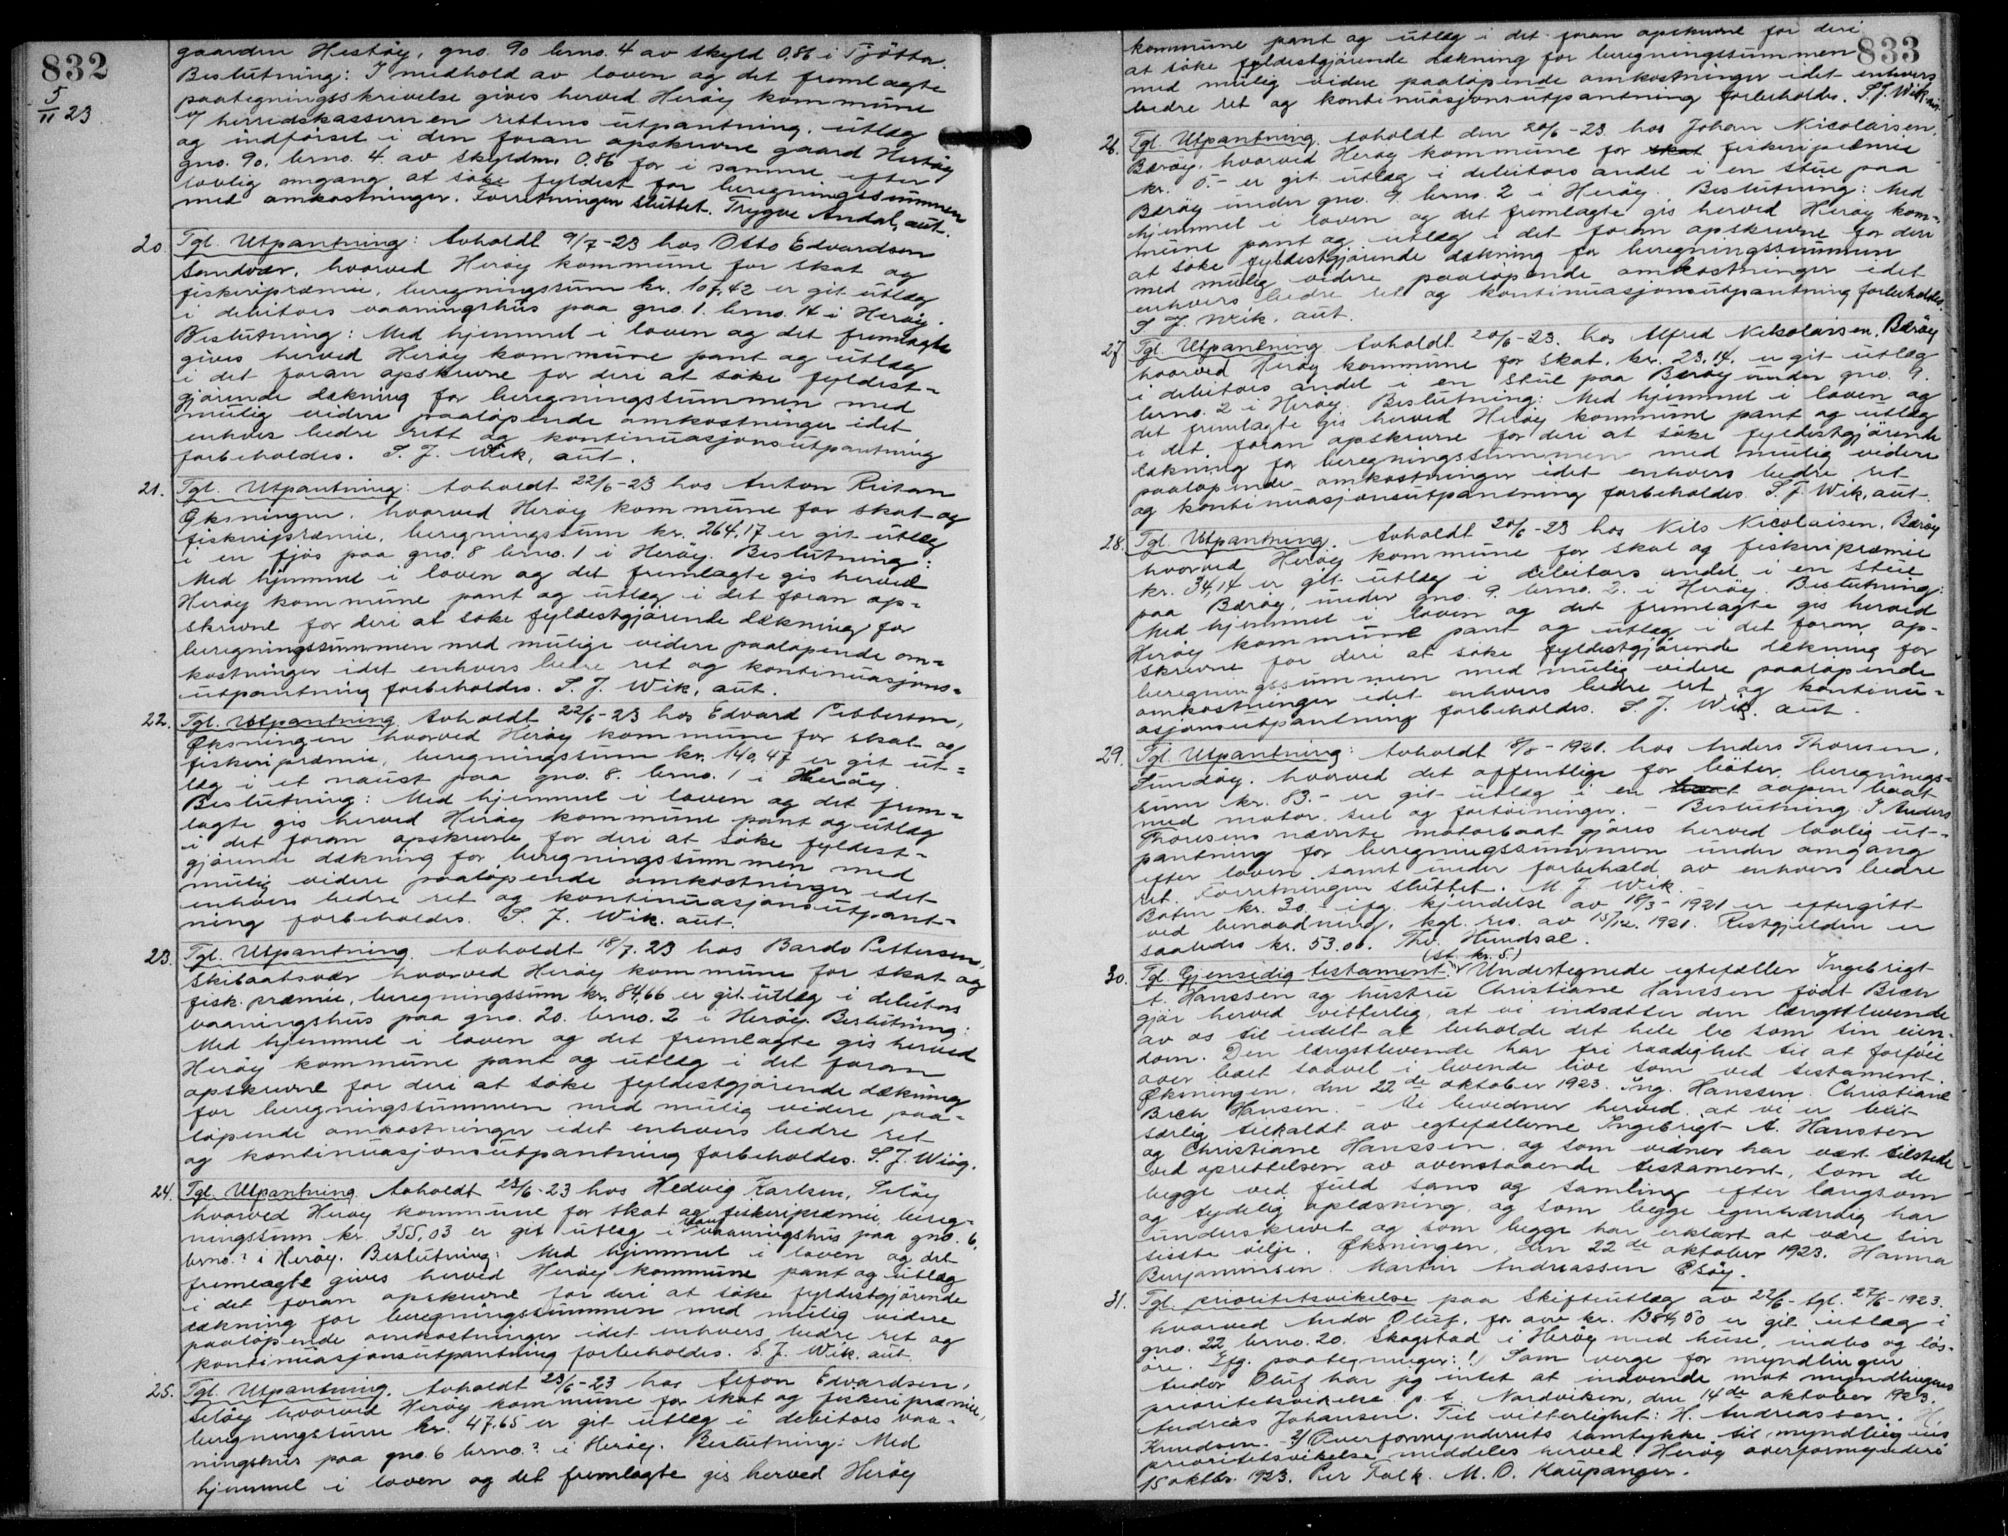 832
5/11 23
gaarden Hestöy, gno. 90 brno. 4 av skyld 0,86 i Tjötta.
Beslutning: I medhold av loven og det fremlagte
paategningsskrivelse gives herved Heröy kommune
v/ herredskasseren rettens utpantning, utlæg
og indförsel i den foran opskrevne gaard Hestöy
gno. 90, brno. 4 av skyldm. 0,86 for i samme efter
lovlig omgang at söke fyldest for beregningssummen
med omkostninger. Forretningen sluttet. Trygve Andal, aut.
20. Tgl. Utpantning: Avholdt 9/7-23 hos Otto Edvardsen
Sandvær, hvorved Heröy kommune for skat og
fiskeripræmie, beregningssum kr. 107,42 er git utlæg
i debitors vaaningshus paa gno. 1. brno. 14 i Heröy.
Beslutning: Med hjemmel i loven og det fremlagte
gives herved Heröy kommune pant og utlæg
i det foran opskrevne for deri at söke fyldest-
gjörende dækning for beregningssummen med
mulig videre paalöpende omkostninger idet
enhver bedre rett og kontinuasjonsutpantning
forbeholdes. S. J. Wik, aut.
21. Tgl. Utpantning: Avholdt 22/6-23 hos Anton Reitan
Öksningen, hvorved Heröy kommune for skat og
fiskeripræmie, beregningssum kr. 264,17 er git utlæg
i en fjös paa gno. 8 brno. 1 i Heröy. Beslutning:
Med hjemmel i loven og det fremlagte gis herved
Heröy kommune pant og utlæg i det foran op-
skrevne for deri at söke fyldestgjörende dækning for
beregningssummen med mulige videre paalöpende om-
kostninger idet enhvers bedre ret og kontinuasjons-
utpantning forbeholdes. S. J. Wik, aut.
22. Tgl. Utpantning. Avholdt 22/6-23 hos Edvard Pebbersen,
Öksningen hvorved Heröy kommune for skat og
fiskeripræmie, beregningssum kr. 140,47 er git ut-
læg i et naust paa gno. 8. brno. 1 i Heröy.
Beslutning: Med hjemmel i loven og det frem-
lagte gis herved Heröy kommune pant og utlæg
i det foran opskrevne for deri at söke fyldest-
gjörende dækning for beregningssummen med
mulig videre paalöpende omkostninger idet
enhvers bedre ret og kontinuasjonsutpant-
ning forbeholdes. S. J. Wik. aut.
23. Tgl. Utpantning. Avholdt 18/7. 23 hos Bardo Pettersen,
Skibaatsvær hvorved Heröy kommune for skat og
fisk. præmie, beregningssum kr. 84,66 er git utlæg i debitors
vaaningshus paa gno. 20. brno. 2 i Heröy. Beslutning:
Med hjemmel i loven og det fremlagte gis herved
Heröy kommune pant og utlæg i det foran
opskrevne for deri at söke fyldestgjörende dækning
for beregningssummen med mulig videre paa-
löpende omkostninger idet enhvers bedre ret
og kontinuasjonsutpantning forbeholdes. S. J. Wiig.
24. Tgl. Utpantning. Avholdt 23/6-23 hos Hedvig Karlsen, Selöy
hvorved Heröy kommune for skat og fiskeripræmie, bereg-
ningssum kr. 355,03 er git utlæg i vaaningshus paa gno. 6,
brno. ? i Heröy. Beslutning: Med hjemmel i loven og det
fremlagte gives herved Heröy kommune pant og utlæg
i det foran opskrevne for deri at söke fyldestgjörende
dækning for beregningssummen med mulig videre
paalöpende omkostninger idet enhvers bedre ret og
kontinuasjonsutpantning forbeholdes. S. J. Wik. aut
25. Tgl. Utpantning. Avholdt 23/6-23 hos Alfon Edvardsen,
Selöy hvorved Heröy kommune for skat og fiskeripræmie,
beregningssum kr. 47,65 er git utlæg i debitors vaa-
ningshus paa gno. 6 brno. ? i Heröy. Beslutning: Med
hjemmel i loven og det fremlagte gis herved Heröy
833
kommune pant og utlæg i det foran opskrevne for deri
at söke fyldestgjörende dækning for beregningssummen
med mulig videre paalöpende omkostninger idet enhvers
bedre ret og kontinuasjonsutpantning forbeholdes. S. J. Wik. aut.
26. Tgl. Utpantning. Avholdt den 20/6-23 hos Johan Nicolaisen,
Bæröy, hvorved Heröy kommune for skat fiskeripræmie
kr. 5.- er git utlæg i debitors andel i en stue paa
Bæröy under gno. 9. brno. 2 i Heröy. Beslutning: Med
hjemmel i loven og det fremlagte gis herved Heröy kom-
mune pant og utlæg i det foran opskrevne for deri
at söke fyldestgjörende dækning for beregningssummen
med mulig videre paalöpende omkostninger idet
enhvers bedre ret og kontinuasjonsutpantning forbeholdes.
S. J. Wik. aut.
27. Tgl. Utpantning. Avholdt 20/6-23. hos Alfred Nikolaisen, Bæröy
hvorved Heröy kommune for skat, kr. 23,14, er git utlæg
i debitors andel i en stue paa Bæröy under gno. 9.
brno. 2 i Heröy. Beslutning: Med hjemmel i loven og
det fremlagte gis herved Heröy kommune pant og utlæg
i det foran opskrevne for deri at söke fyldestgjörende
dækning for beregningssummen med mulig videre
paalöpende omkostninger idet enhvers bedre ret
og kontinuasjonsutpantning forbeholdes. S. J. Wik, aut.
28. Tgl. Utpantning. Avholdt 20/6-23 hos Nils Nicolaisen, Bæröy
hvorved Heröy kommune for skat og fiskeripræmie
kr. 34,14 er git utlæg i debitors andel i en stue
paa Bæröy, under gno. 9. brno. 2. i Heröy. Beslutning:
Med hjemmel i loven og det fremlagte gis herved
Heröy kommune pant og utlæg i det foran op-
skrevne for deri at söke fyldestgjörende dækning for
beregningssummen med mulig videre paalöpende
omkostninger idet enhvers bedre ret og kontinu-
asjonsutpantning forbeholdes. S. J. Wik. aut.
29. Tgl. Utpantning: Avholdt 8/8-1921. hos Anders Thoresen,
Sundöy, hvorved det offentlige for böter, beregnings-
sum kr. 83.- er git utlæg i en aapen baat
med motor, seil og fortöininger. - Beslutning: I Anders
Thoresens nævnte motorbaat gjöres herved lovlig ut-
pantning for beregningssummen under omgang
efter loven samt under forbehold av enhvers bedre
ret. Forretningen sluttet. M. J. Wik.
Boten kr. 30.- ifg. kjendelse av 18/3-1921 er eftergitt
ved benaadning, kgl. res. av 15/12. 1921. Restgjelden er
saaledes kr. 53.00. Thv. Hundsal.
(st. kr. 5)
30. Tgl. Gjensidig testament. Undertegnede egtefæller Ingebrigt
A. Hanssen og hustru Christiane Hanssen födt Bech
gjör herved vitterlig, at vi indsætter den længstlevende
av os til udelt at beholde det hele bo som sin eien-
dom. Den længstlevende har fri raadighet til at forföie
over boet saavel i levende live som ved testament.
Öksningen, den 22de oktober 1923. Ing. Hanssen. Christiane
Bech Hansen. - Vi bevidner herved, at vi er blit
særlig tilkaldt av egtefællerne Ingebrigt A. Hanssen
og Christiane Hanssen, og som vidner har vært tilstede
ved oprettelsen av ovenstaaende testament, som de
begge ved fuld sans og samling efter langsom
og tydelig oplæsning og som begge egenhændig har
underskrevet og som begge har erklært at være sin
sidste vilje. Öksningen, den 22de oktober 1923. Hanna
Benjaminsen. Martin Andreassen Elsöy.
31. Tgl. prioritetsvikelse paa skifteutlæg av 22/6- tgl. 27/6-1923.
hvorved Andor Oluf, for arv kr. 1384,50 er git utlæg i
gno. 22, brno. 20. Skogstad i Heröy med huse, indbo og lös-
öre. Ifg. paategninger: 1) Som verge for myndlingen
Andor Oluf har jeg intet at indvende mot myndlingens
prioritetsvikelse p. t. Nordviken, den 14de oktober 1923.
Andreas Johansen. Til vitterlighet: H. Andreassen. H.
Knudsen. - 2) Overformynderiets samtykke til myndlingens
prioritetsvikelse meddeles herved Heröy overformynderi
15 oktbr. 1923. Per Falk. M. O. Kaupanger.